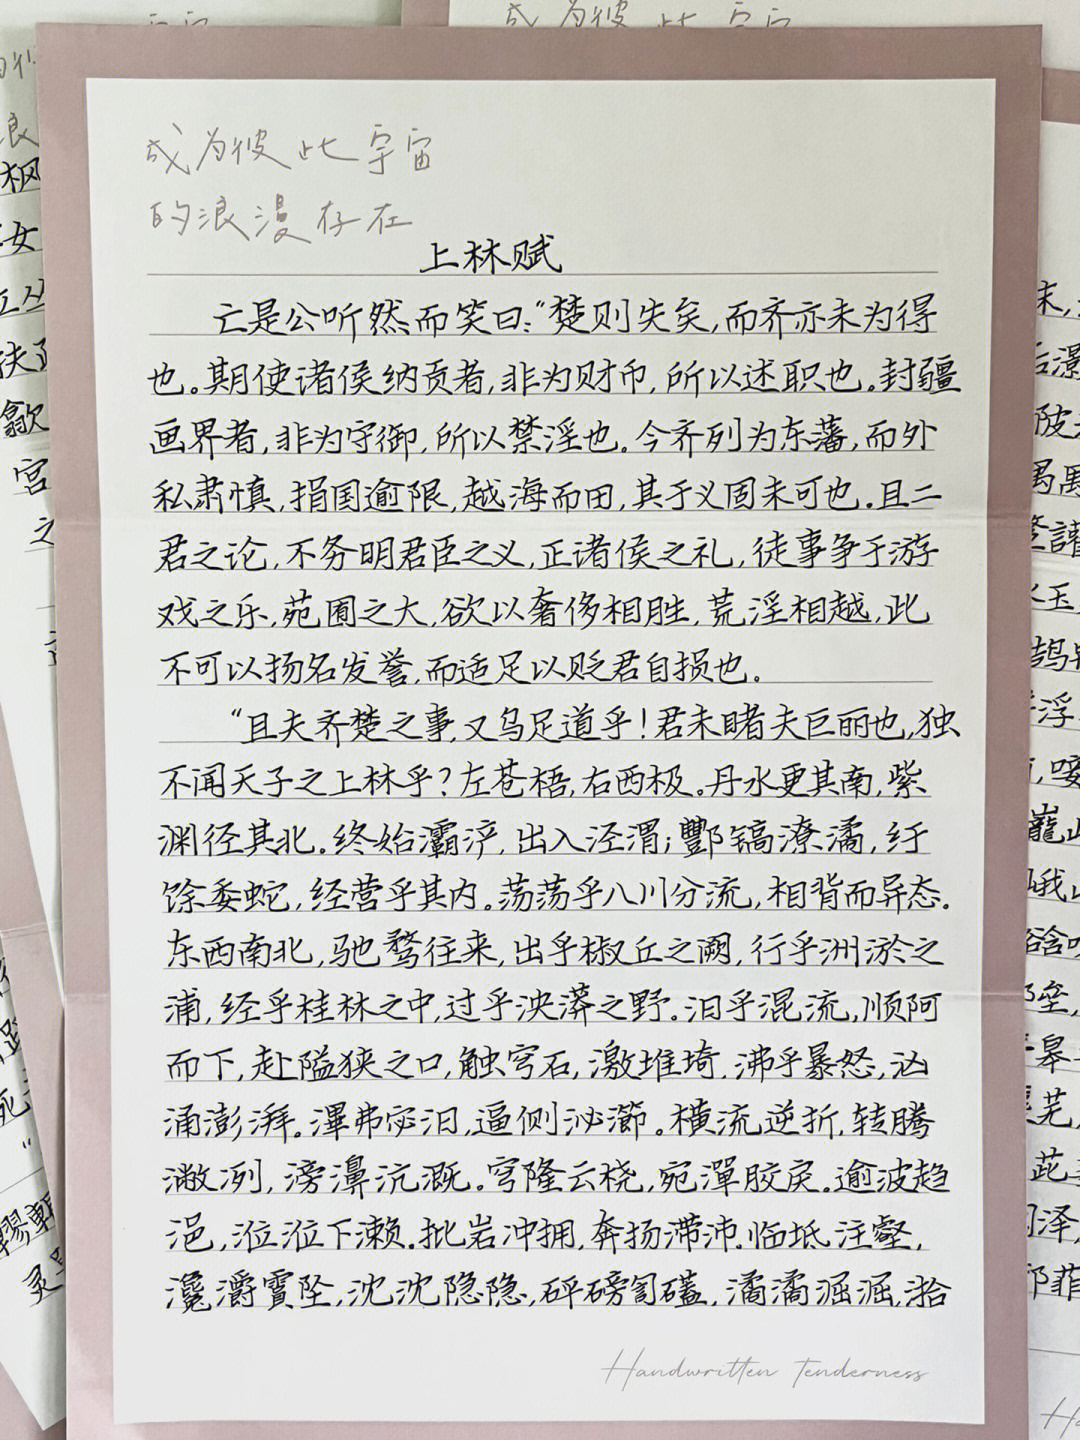 成为彼此宇宙
的浪漫存在
上林赋
亡是公听然而笑曰：“楚则失矣，而齐亦未为得
也。期使诸侯纳贡者，非为财币，所以述职也。封疆
画界者，非为守御，所以禁淫也。今齐列为东藩，而外
私肃慎，捐国逾限，越海而田，其于义固未可也。且二
君之论，不务明君臣之义，正诸侯之礼，徒事争于游
戏之乐，苑囿之大，欲以奢侈相胜，荒淫相越，此
不可以扬名发誉，而适足以贬君自损也。
“且夫齐楚之事，又乌足道乎！君未睹夫巨丽也，独
不闻天子之上林乎？左苍梧，右西极。丹水更其南，紫
渊径其北。终始灞浐，出入泾渭；酆镐潦潏，纡
馀委蛇，经营乎其内。荡荡乎八川分流，相背而异态。
东西南北，驰骛往来，出乎椒丘之阙，行乎洲淤之
浦，经乎桂林之中，过乎泱漭之野。汩乎混流，顺阿
而下，赴隘狭之口，触穹石，激堆埼，沸乎暴怒，汹
涌澎湃。滭弗宓汩，逼侧泌瀄。横流逆折，转腾
潎洌，滂濞沆溉。穹隆云桡，宛潬胶戾。逾波趋
浥，涖涖下濑。批岩冲拥，奔扬滞沛。临坻注壑，
瀺灂霣坠，沈沈隐隐，砰磅訇礚，潏潏淈淈，湁
Handwritten Tenderness